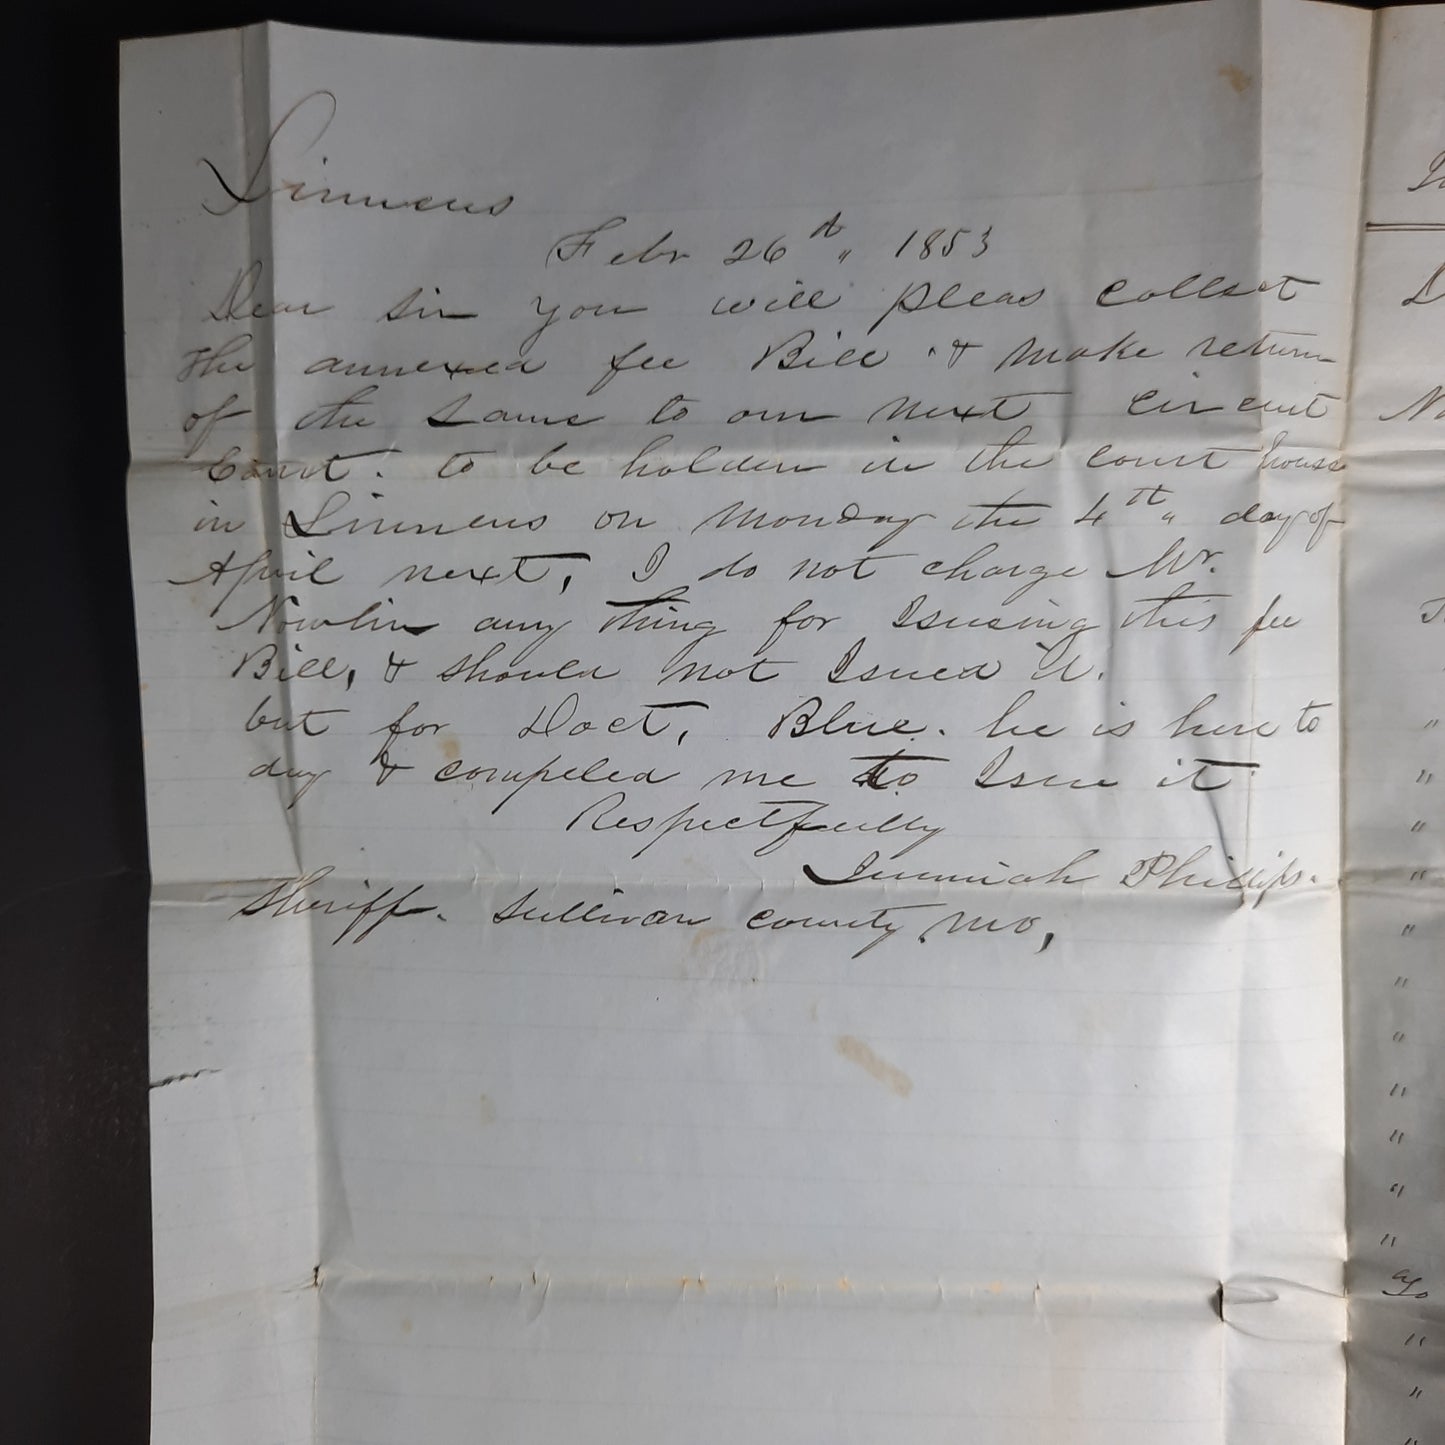 Linneus
Febr 26th, 1853
Dear Sir you will pleas collect
the annexed fee Bill & make return
of the same to our next circuit
Court. to be holden in the court house
in Linneus on Monday the 4th, day of
April next, I do not charge Mr.
Nowlin any thing for Issusing this fee
Bill, & should not Issued it.
but for Doct, Blue. he is here to
day & compeled me to Issue it
Respectfully
Jeremiah Phillips.
Sheriff. Sullivan county Mo,